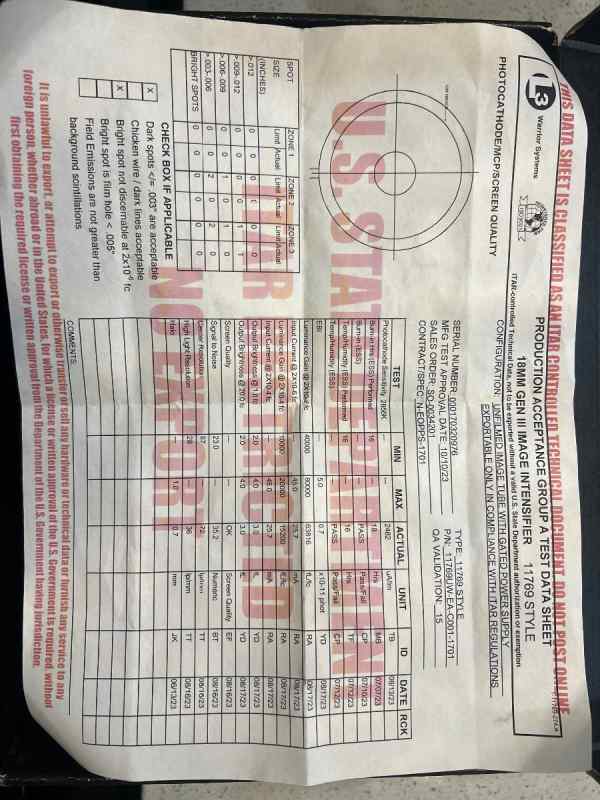 THIS DATA SHEET IS CLASSIFIED AS AN ITAR CONTROLLED TECHNICAL DOCUMENT. DO NOT POST ONLINE
L3
Warrior Systems
PRODUCTION ACCEPTANCE GROUP A TEST DATA SHEET
18MM GEN III IMAGE INTENSIFIER 11769 STYLE
ITAR-controlled Technical Data, not to be exported without a valid U.S. State Department authorization or exemption
CONFIGURATION: UNFILMED IMAGE TUBE WITH GATED POWER SUPPLY
EXPORTABLE ONLY IN COMPLIANCE WITH ITAR REGULATIONS
PHOTOCATHODE/MCP/SCREEN QUALITY
SERIAL NUMBER: 000170320976
TYPE: 11769 STYLE
MFG TEST APPROVAL DATE: 10/10/23
P/N: 11769UW-EA-C001-1701
SALES ORDER: SO-0034201
QA VALIDATION: 15
CONTRACT/SPEC: N-EQPPS-1701
SPOT SIZE (INCHES) ZONE 1 ZONE 2 ZONE 3
Limit Actual Limit Actual Limit Actual
>.012 0 0 0 0 0 0
>.009-.012 0 0 0 0 1 1
>.006-.009 0 0 1 0 1 0
>.003-.006 0 0 2 0 2 0
BRIGHT SPOTS 0 0 0 0 0 0
CHECK BOX IF APPLICABLE
X Dark spots </= .003" are acceptable
Chicken wire / dark lines acceptable
X Bright spot not discernable at 2x10⁻⁶ fc
Bright spot is film hole < .005"
Field Emissions are not greater than
background scintillations
TEST MIN MAX ACTUAL UNIT ID DATE RCK
Photocathode Sensitivity 2856K --- 2482 uA/lm TB 06/13/23
Burn-in Hrs (ESS) Performed 16 --- 18 Hrs MS 07/07/23
Burn-in (ESS) --- PASS Pass/Fail CP 07/10/23
Temp/Humidity (ESS) Performed 16 --- 16 Hrs TF 07/12/23
Temp/Humidity (ESS) --- PASS Pass/Fail CP 07/12/23
EBI --- 5.0 0.7 x10-11 phot YD 08/17/23
Luminance Gain @ 2x10-6 fc 40000 80000 63816 fL/fc RA 08/17/23
Input Current @ 2X10-6 fc --- 45.0 25.7 mA RA 08/17/23
Luminance Gain @ 2X10-4 fc 10000 20000 15200 fL/fc RA 08/17/23
Input Current @ 2X10-4 fc --- 45.0 25.7 mA RA 08/17/23
Output Brightness @ 1.0 fc 2.0 4.0 3.0 fL YD 08/17/23
Output Brightness @ 20.0 fc 2.0 4.0 3.0 fL YD 08/17/23
Screen Quality --- OK Screen Quality EF 08/16/23
Signal to Noise 25.0 --- 35.2 Numeric BT 08/16/23
Center Resolution 57 --- 72 lp/mm TT 08/16/23
High Light Resolution 28 --- 36 lp/mm TT 08/16/23
Halo --- 1.0 0.7 mm JK 06/13/23
COMMENTS:
It is unlawful to export, or attempt to export or otherwise transfer or sell any hardware or technical data or furnish any service to any
foreign person, whether abroad or in the United States, for which a license or written approval of the U.S. Government is required, without
first obtaining the required license or written approval from the Department of the U.S. Government having jurisdiction.
U.S. STATE DEPARTMENT